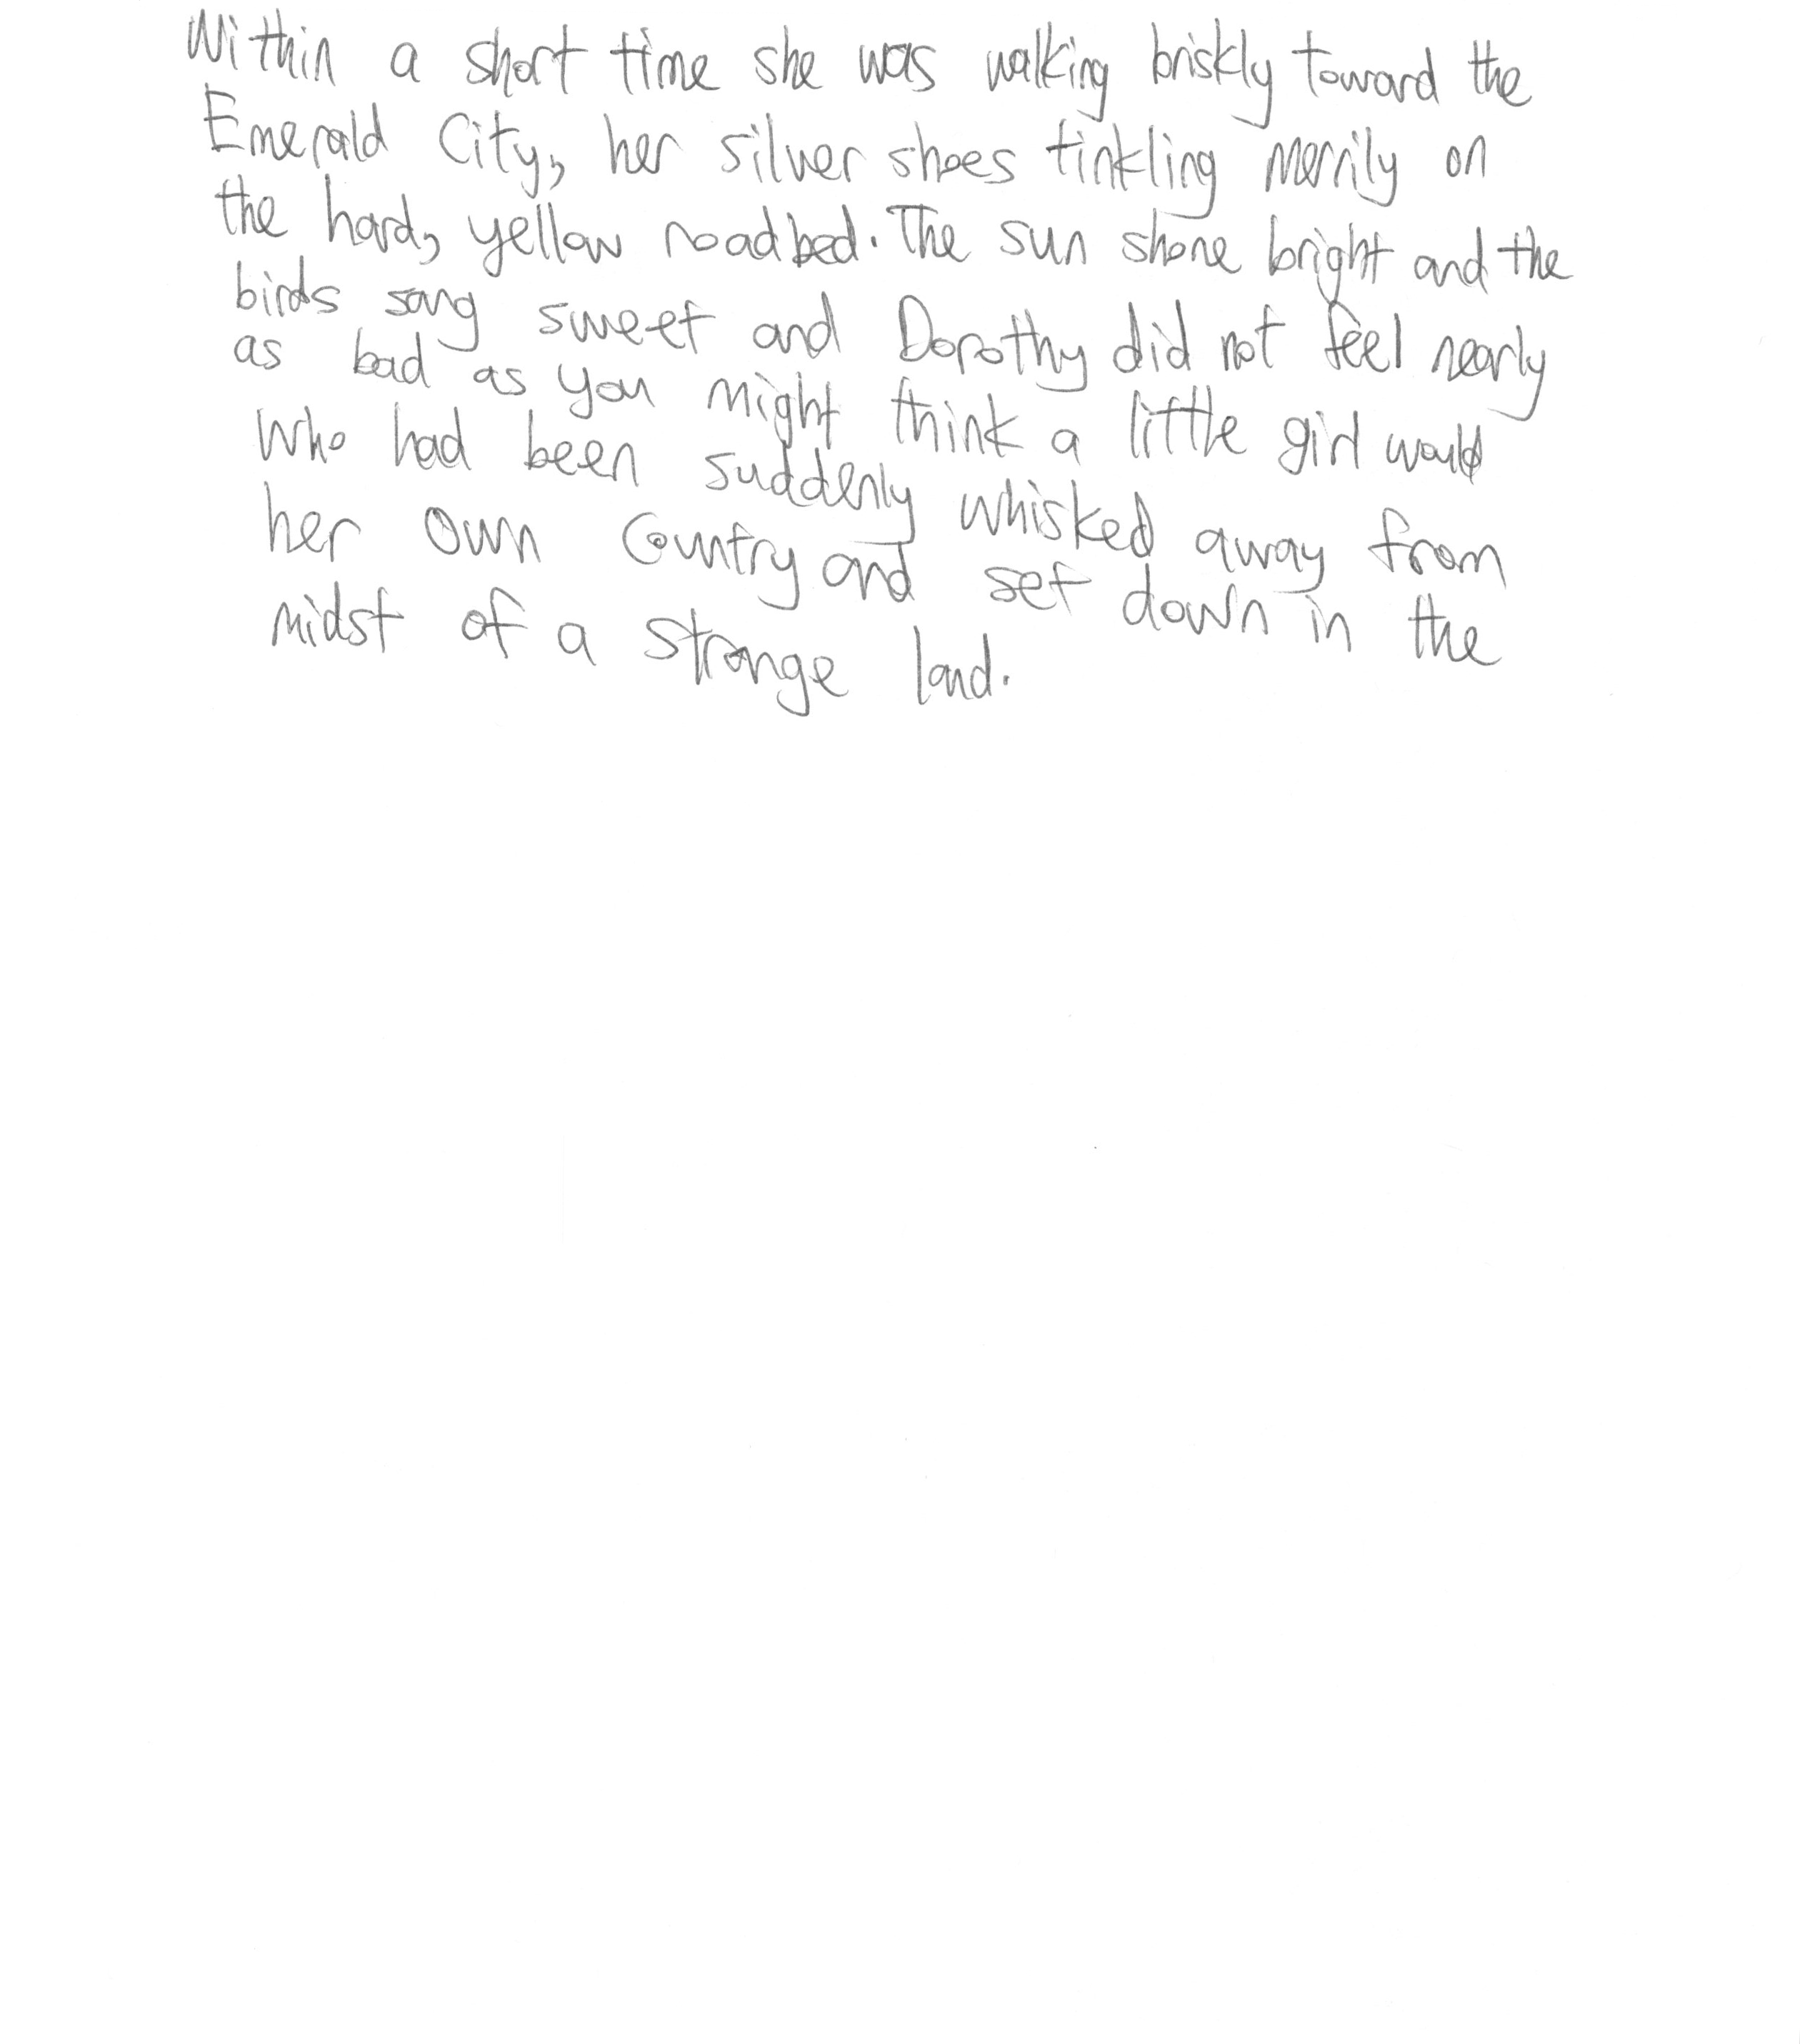 Within a short time she was walking briskly toward the
Emerald City, her silver shoes tinkling merrily on
the hard, yellow roadbed. The sun shone bright and the
birds sang sweet and Dorothy did not feel nearly
as bad as you might think a little girl would
who had been suddenly whisked away from
her own country and set down in the
midst of a strange land.